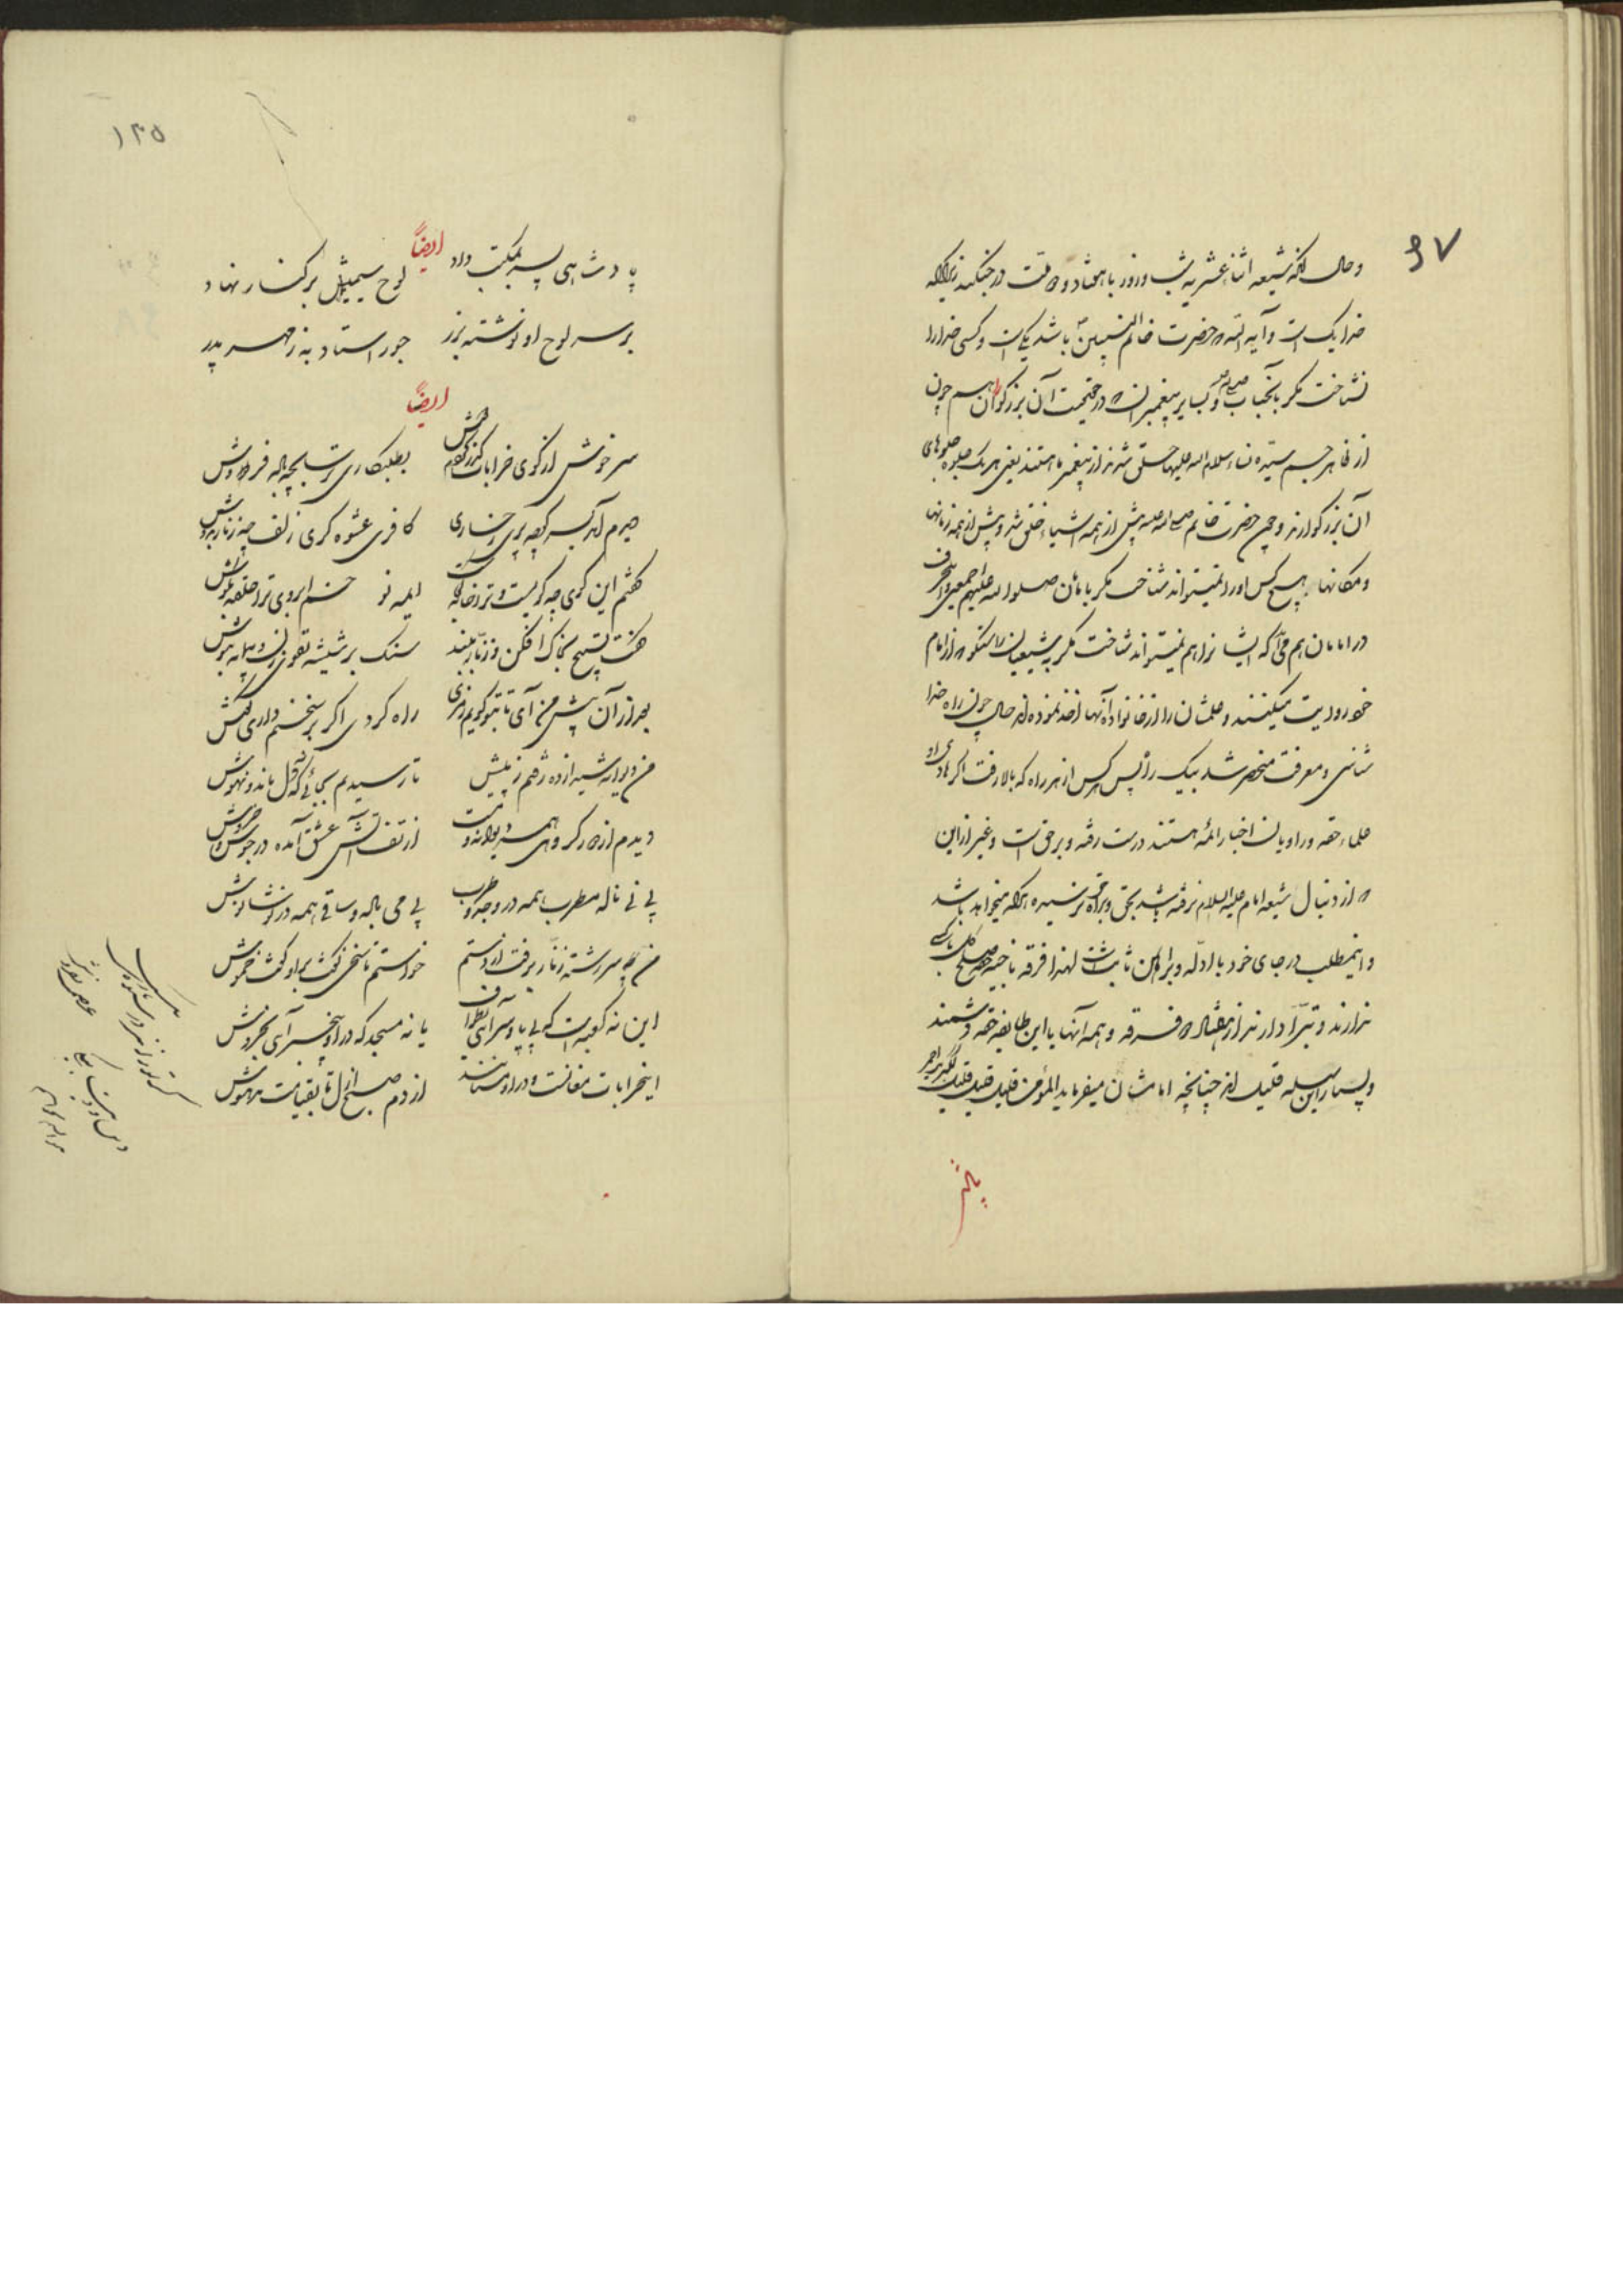 ۹۷
و حال آنکه شیعه اثنا عشریه شب و روز با هفتاد و دو ملت در جنگند زیرا که
خدا یک است و آیه الله که حضرت خاتم النبیین ص باشد یکی است و کسی خدا را
نشناخت مگر بآنجناب و سایر پیغمبران که در حقیقت آن بزرگواران هم چون
از ظاهر جسم سیده نساء سلام الله علیها خلق شدند از پیغمبر ما هستند یعنی هر یک جلوه از جلوه‌های
آن بزرگوارند و چون حضرت خاتم پیش از همه اشیاء خلق شد و پیش از همه زمانها
و مکانها هیچ کس او را نمیتواند شناخت مگر بامامان صلوات الله علیهم اجمعین
در امامان هم حقا که ایشانرا هم نمیتواند شناخت مگر بشیعیان راستگو که از امام
خود روایت میکنند و علمشان را از خانواده آنها اخذ نموده‌اند حال چون راه خدا
شناسی و معرفت منحصر شد بیک راه پس هر کس از هر راه که بالا رفت اگر هادی او
علماء حقه و راویان اخبار ائمه هستند درست رفته و بر حق است و غیر از این
که از دنبال شیعه امام علیه السلام نرفته باشد بحق و براه حق نرسیده هر که میخواهد باشد
و اینمطلب در جای خود با ادله و براهین ثابت است لهذا فرقه ناجیه صلح کل با کسی
ندارند و تبرا دارند از هفتاد و دو فرقه و همه آنها با این طایفه حقه دشمنند
و بسیار این سلسله قلیل‌اند چنانچه امامشان میفرماید المؤمن قلیل قلیل قلیل
۱۲۵
ایضاً
پادشاهی پسر بمکتب داد لوح سیمینش بر کنار نهاد
بر سر لوح او نوشته بزر جور استاد به ز مهر پدر
ایضاً
سرخوش از کوی خرابات گذر کردم دوش بطلبکاری ترسابچه باده فروش
پیشم آمد بسر کوچه پری رخساری کافری عشوه گری زلف چو زنار بدوش
گفتم این کوی چه کویست و ترا خانه کجاست ای مه نو خم ابروی ترا حلقه بگوش
گفت تسبیح بخاک افکن و زنار ببند سنگ بر شیشه تقوی زن و پیمانه بنوش
بعد از آن پیش من آی تا بتو گویم رمزی راه کردی اگر بر سخنم داری گوش
من دیوانه شیدا زده رفتم ز پیش تا رسیدم بجائی که نه دل ماند و نه هوش
دیدم از دور گروهی همه دیوانه و مست از تف آتش عشق آمده در جوش و خروش
بی نی ناله مطرب همه در وجد و طرب بی می باله و ساقی همه در نوشانوش
من چو سر رشته زنار برفت از دستم خواستم تا سخنی گویمش او گفت خموش
این نه کعبه است که بی پا و سر آئی بطواف یا نه مسجد که در او بیخبر آئی بخروش
اینخرابات مغانست و در او مستانند از دم صبح ازل تا بقیامت مدهوش